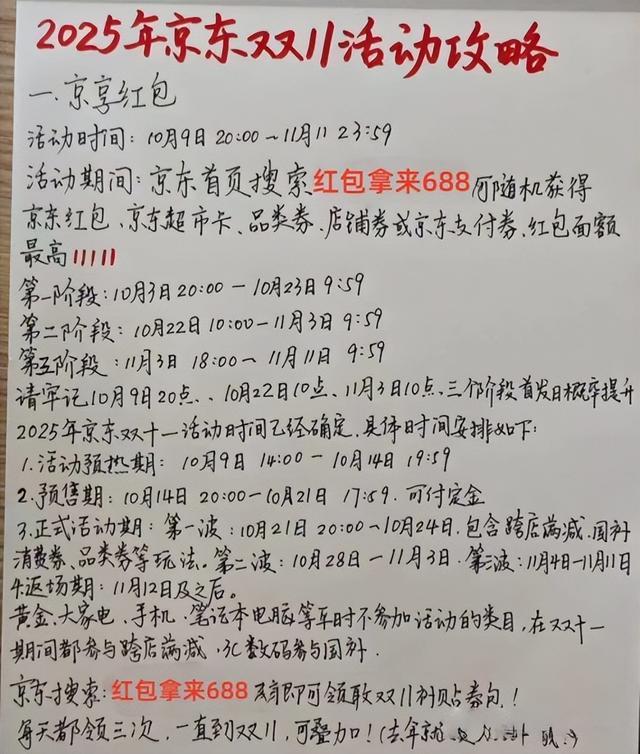 2025年京东双11活动攻略
一.京享红包
活动时间：10月9日 20:00~11月11 23:59
活动期间：京东首页搜索红包拿来688可随机获得
京东红包、京东超市卡、品类券.店铺券或京东支付券.红包面额
最高11111
第一阶段：10月3日20:00－10月23日 9:59
第二阶段：10月22日 10:00－11月3日 9:59
第五阶段：11月3日 18:00~11月11日 9:59
请牢记10月9日20点、、10月22日10点、11月3日10点、三个阶段首发日概率提升
2025年京东双十一活动时间已经确定，具体时间安排如下：
1.活动预热期：10月9日 14:00－10月14日 19:59
2.预售期：10月14日 20:00－10月21日 17:59.可付定金
3.正式活动期：第一波：10月21日 20:00~10月24日.包含跨店满减.国补
消费券、品类券等玩法。第二波：10月28日－11月3日.第三波：11月4日-11月11日
4.返场期：11月12日及之后。
黄金、大家电、手机、笔记本电脑等平时不参加活动的类目，在双十一
期间都参与跨店满减.3C数码参与国补.
京东搜索：红包拿来688 即可领取双11补贴券包！
每天都领三次，一直到双11，可叠加！(去年就